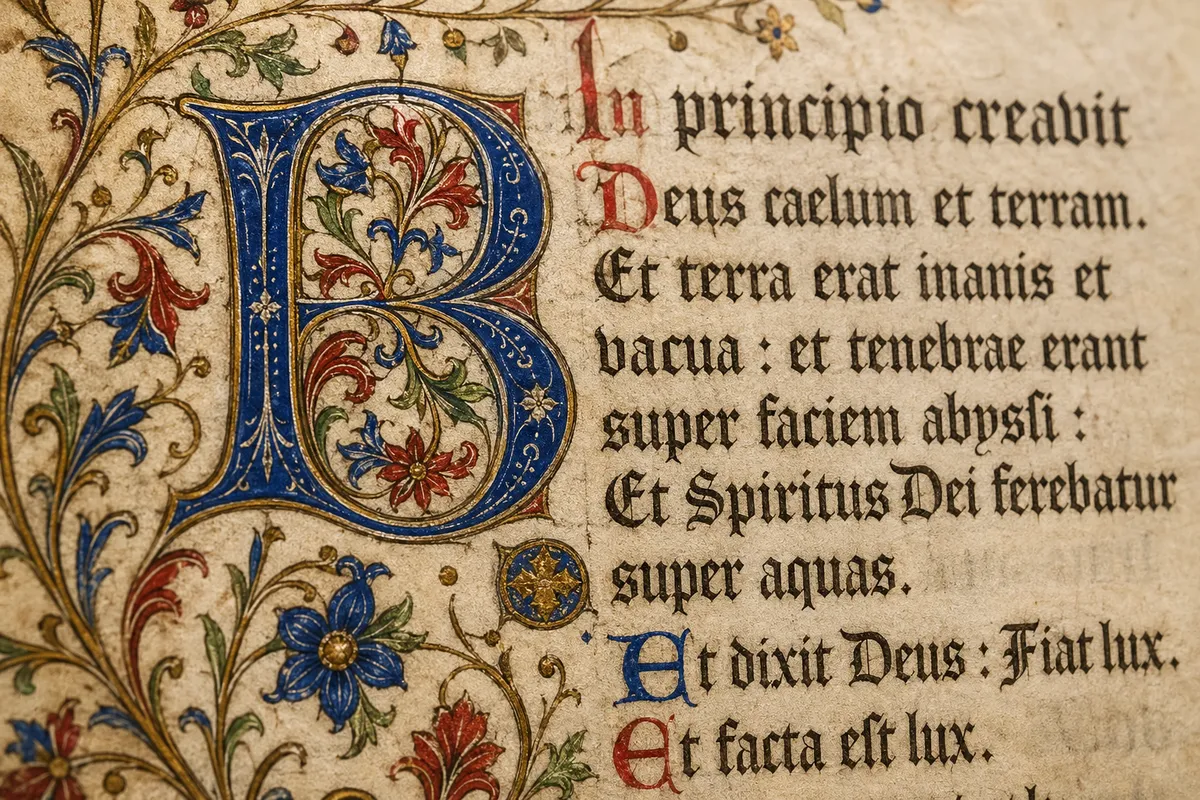 B
In principio creavit
Deus caelum et terram.
Et terra erat inanis et
vacua : et tenebrae erant
super faciem abyſſi :
Et Spiritus Dei ferebatur
super aquas.
Et dixit Deus : Fiat lux.
Et facta eſt lux.